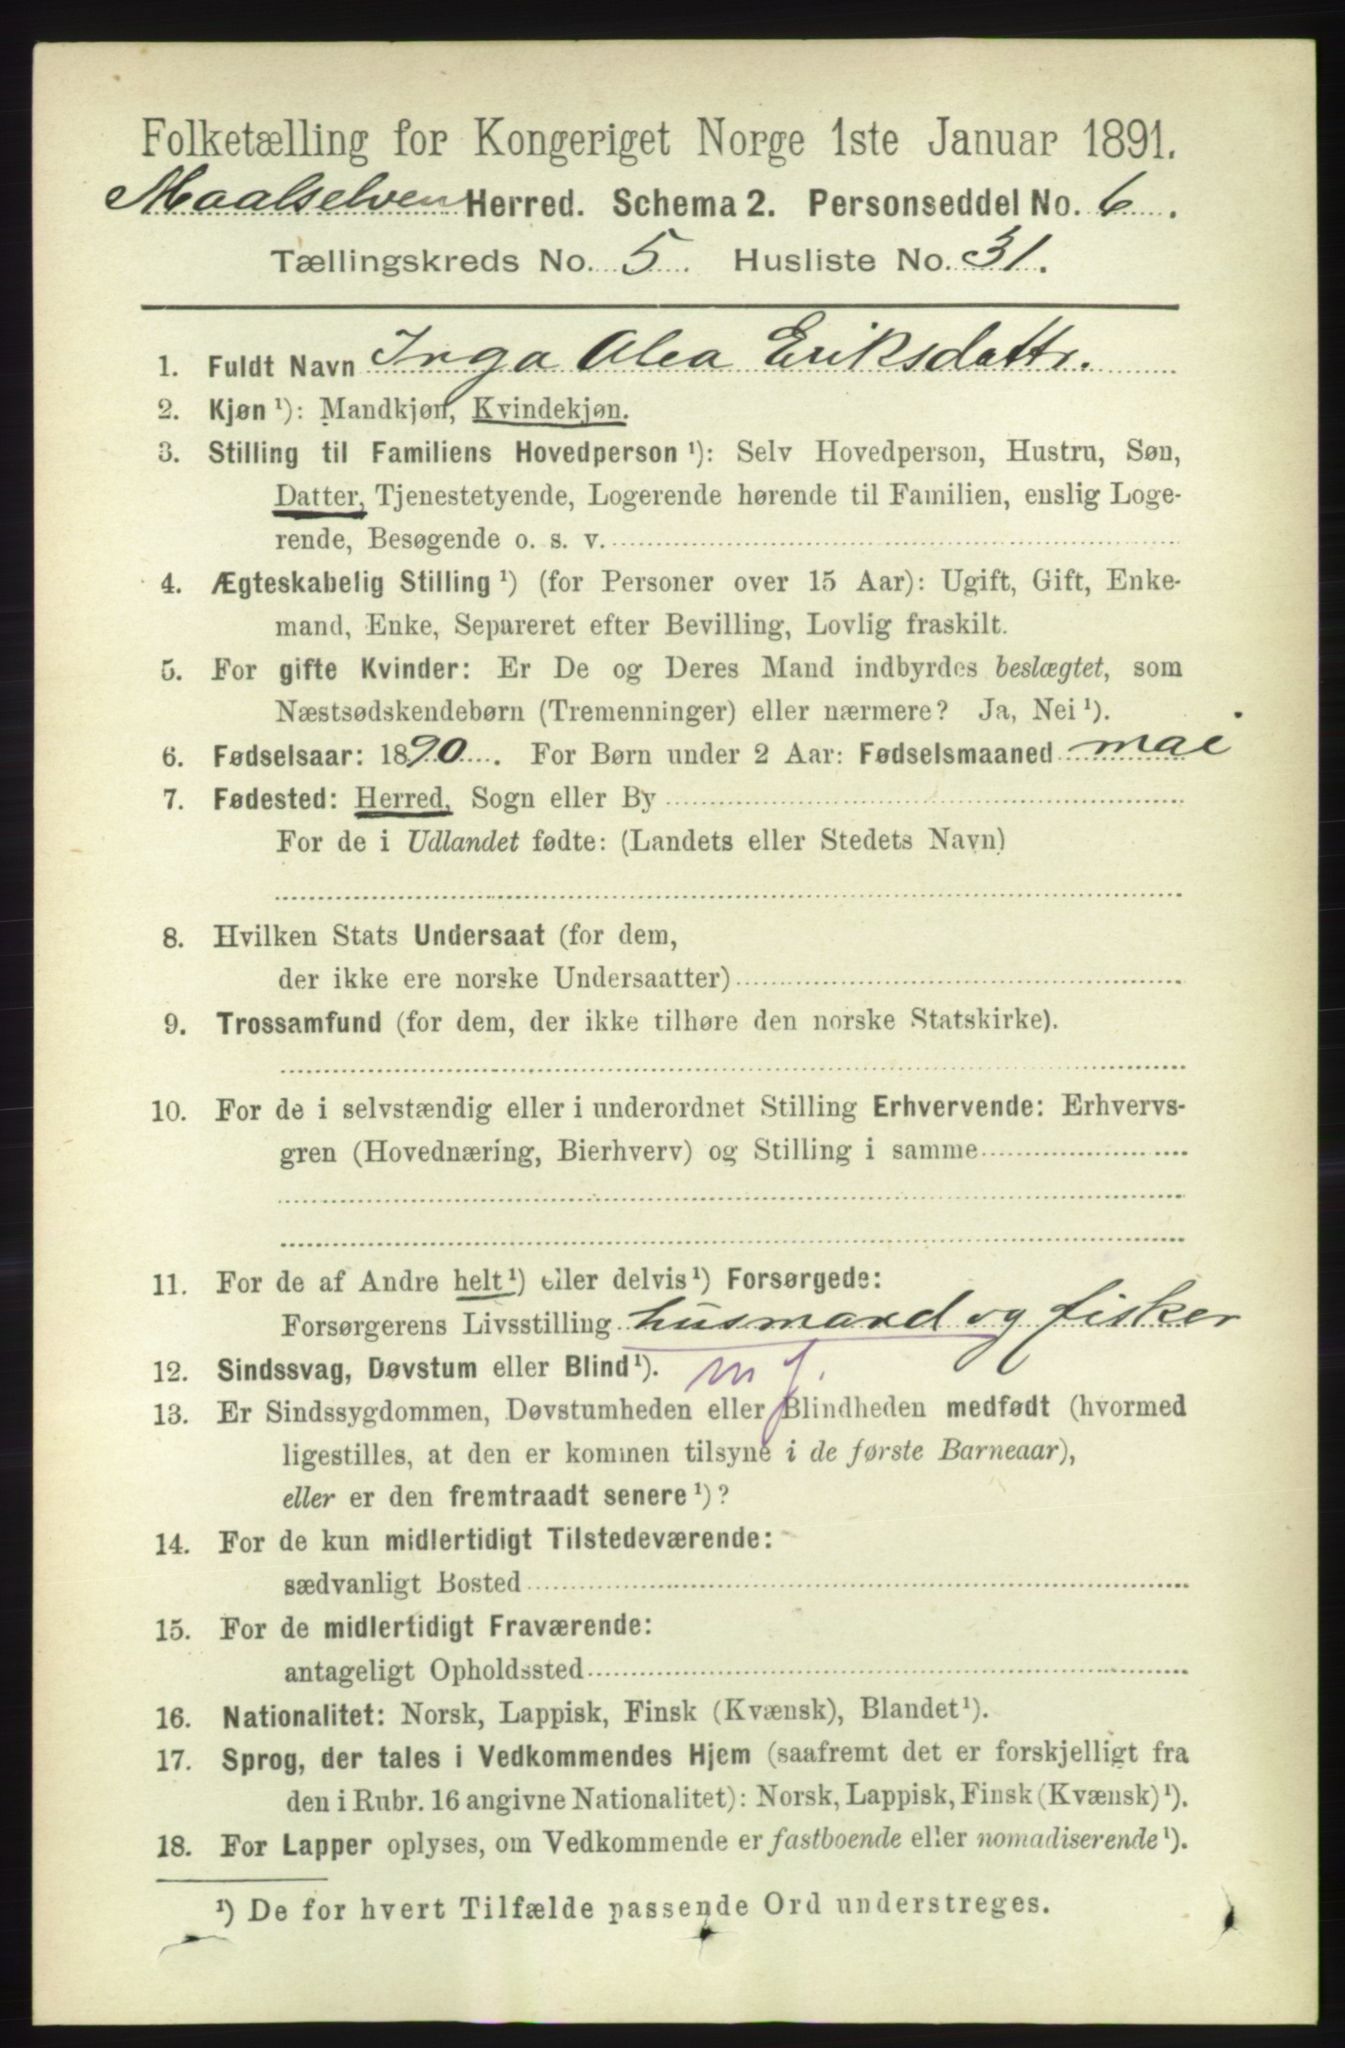 Folketælling for Kongeriget Norge 1ste Januar 1891.
Maalselven Herred. Schema 2. Personseddel No. 6.
Tællingskreds No. 5. Husliste No. 31.
1. Fuldt Navn Inga Alea Eriksdattr.
2. Kjøn ¹): Mandkjøn, Kvindekjøn.
3. Stilling til Familiens Hovedperson ¹): Selv Hovedperson, Hustru, Søn,
Datter, Tjenestetyende, Logerende hørende til Familien, enslig Loge-
rende, Besøgende o. s. v.
4. Ægteskabelig Stilling ¹) (for Personer over 15 Aar): Ugift, Gift, Enke-
mand, Enke, Separeret efter Bevilling, Lovlig fraskilt.
5. For gifte Kvinder: Er De og Deres Mand indbyrdes beslægtet, som
Næstsødskendebørn (Tremenninger) eller nærmere? Ja, Nei ¹).
6. Fødselsaar: 1890. For Børn under 2 Aar: Fødselsmaaned mai
7. Fødested: Herred, Sogn eller By
For de i Udlandet fødte: (Landets eller Stedets Navn)
8. Hvilken Stats Undersaat (for dem,
der ikke ere norske Undersaatter)
9. Trossamfund (for dem, der ikke tilhøre den norske Statskirke).
10. For de i selvstændig eller i underordnet Stilling Erhvervende: Erhvervs-
gren (Hovednæring, Bierhverv) og Stilling i samme
11. For de af Andre helt ¹) eller delvis ¹) Forsørgede:
Forsørgerens Livsstilling husmand og fisker
12. Sindssvag, Døvstum eller Blind ¹). mf.
13. Er Sindssygdommen, Døvstumheden eller Blindheden medfødt (hvormed
ligestilles, at den er kommen tilsyne i de første Barneaar),
eller er den fremtraadt senere ¹)?
14. For de kun midlertidigt Tilstedeværende:
sædvanligt Bosted
15. For de midlertidigt Fraværende:
antageligt Opholdssted
16. Nationalitet: Norsk, Lappisk, Finsk (Kvænsk), Blandet ¹).
17. Sprog, der tales i Vedkommendes Hjem (saafremt det er forskjelligt fra
den i Rubr. 16 angivne Nationalitet): Norsk, Lappisk, Finsk (Kvænsk) ¹).
18. For Lapper oplyses, om Vedkommende er fastboende eller nomadiserende ¹).
¹) De for hvert Tilfælde passende Ord understreges.